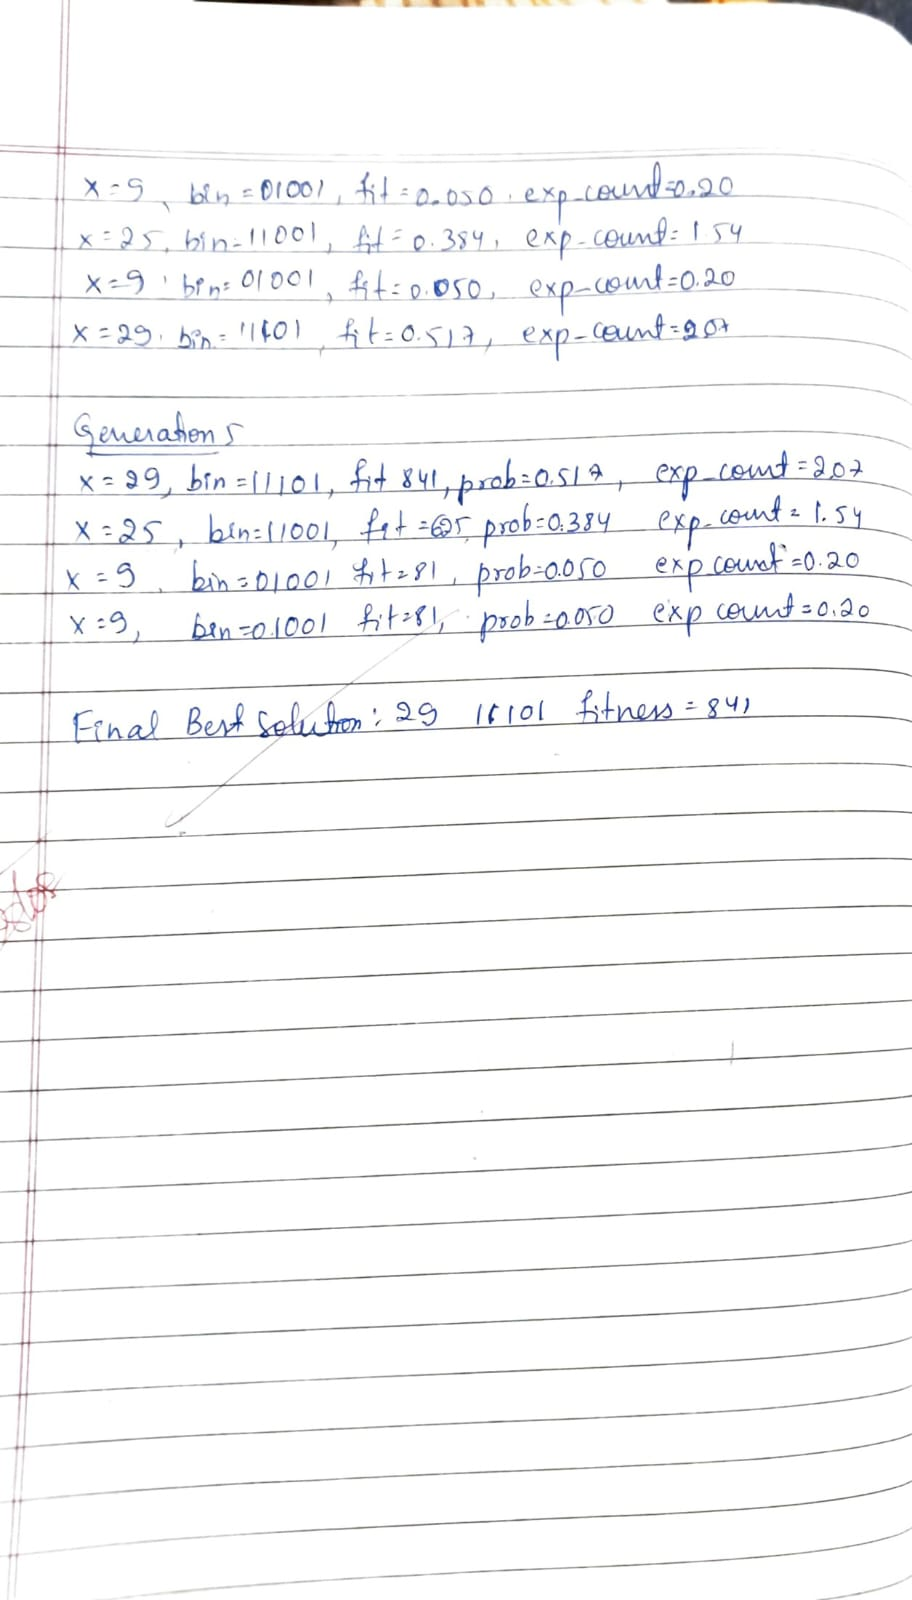 x=9, bin=01001, fit=0.050, exp-count=0.20
x=25, bin=11001, fit=0.384, exp-count=1.54
x=9, bin=01001, fit=0.050, exp-count=0.20
x=29, bin=11101, fit=0.517, exp-count=207
Generation 5
x=29, bin=11101, fit 841, prob=0.517, exp-count=207
x=25, bin=11001, fit=625, prob=0.384 exp-count=1.54
x=9, bin=01001 fit=81, prob=0.050 exp count=0.20
x=9, bin=01001 fit=81, prob=0.050 exp count=0.20
Final Best Solution: 29 11101 fitness=841